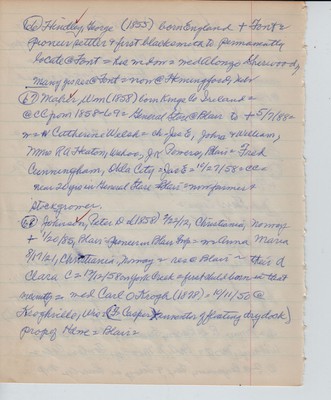 (66) Hindley, George (1855) born England + Font =
pioneer settler + first blacksmith to permanently
locate @ Font = hoe mdm = med Alonzo Sherwood
many years @ Font = now @ Hemingford, Nebr
(67) Maher, Wm (1858) born Kings Co Ireland =
@ CC from 1858-69 = General Store @ Blair to + 5/7/88 =
m = H Catherine Walsh = ch Joe E, John + William,
Mms P.A Heaton, Wahoo, J.K Powers, Blair = Fred
Cunningham, Okla City = Joe E = 10/27/58 = CC =
near 20 yrs in General Store Blair = now farmer +
stockgrower.
(68) Johnson, Peter O d (1858) 2/2/12, Christiania, Norway
+ 1/20/85, Blair = Farmer in Blair = m Anna Maria
8/17/21, Christiania, Norway = res @ Blair = their d
Clara C = 12/17/58 on york Creek = first child born in that
vicinity = med Carl O Krogh (1878) = 10/11/50 @
Kroghville, Wis = (In Casper inventor of floating drydock)
propr of Home = Blair =